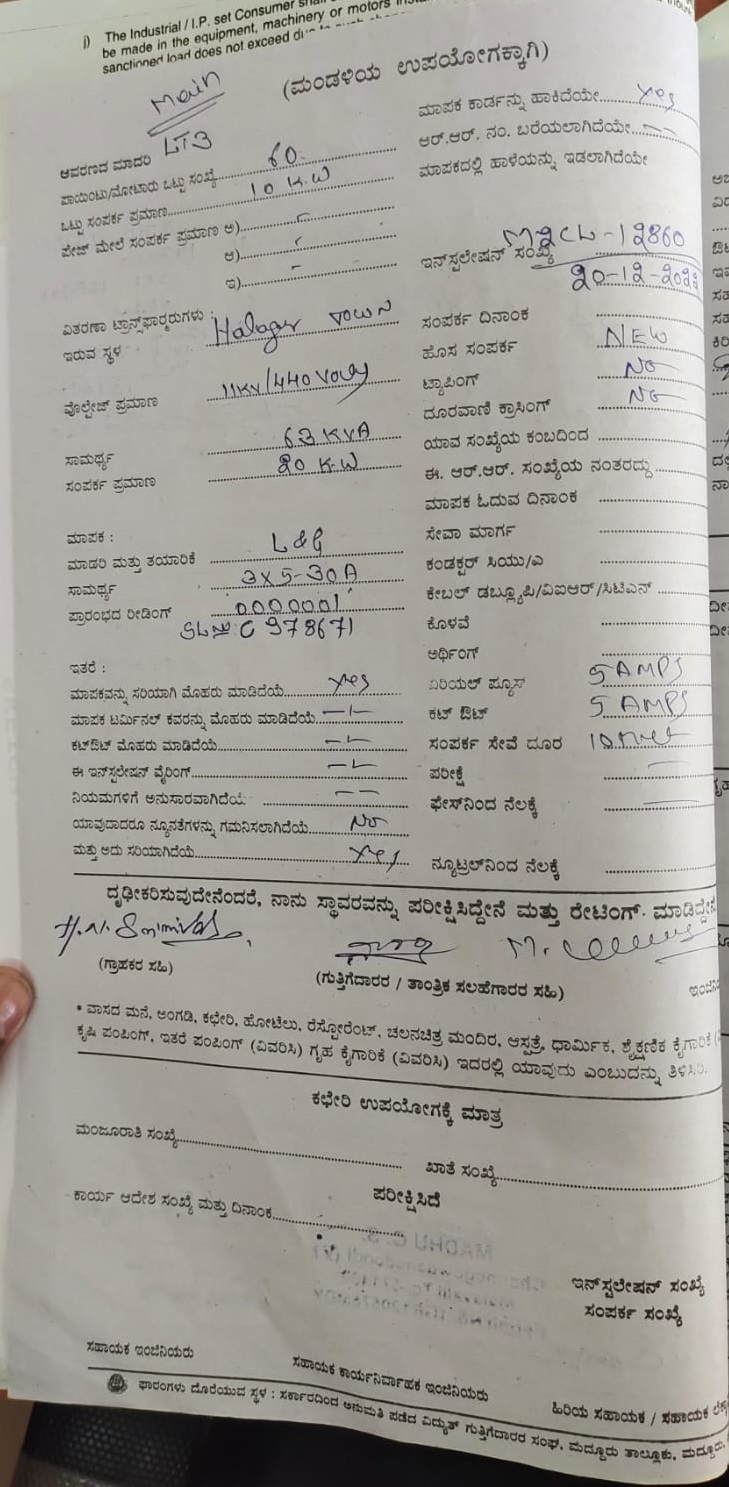 i) The Industrial / I.P. set Consumer
be made in the equipment, machinery or motors
sanctioned load does not exceed
(ಮಂಡಳಿಯ ಉಪಯೋಗಕ್ಕಾಗಿ)
Main
LT3
ಆವರಣದ ಮಾದರಿ
ಪಾಯಿಂಟು/ಮೋಟಾರು ಒಟ್ಟು ಸಂಖ್ಯೆ 60
ಒಟ್ಟು ಸಂಪರ್ಕ ಪ್ರಮಾಣ 10 K.W
ಪೇಜ್ ಮೇಲೆ ಸಂಪರ್ಕ ಪ್ರಮಾಣ ಅ)
ಆ)
ಇ)
ವಿತರಣಾ ಟ್ರಾನ್ಸ್‌ಫಾರ್ಮರುಗಳು :
ಇರುವ ಸ್ಥಳ Halagur TOWN
ವೋಲ್ಟೇಜ್ ಪ್ರಮಾಣ 11KV/440
ಸಾಮರ್ಥ್ಯ 63 KVA
ಸಂಪರ್ಕ ಪ್ರಮಾಣ 20 K.W
ಮಾಪಕ :
ಮಾಡರಿ ಮತ್ತು ತಯಾರಿಕೆ L&G
ಸಾಮರ್ಥ್ಯ 3X5-30A
ಪ್ರಾರಂಭದ ರೀಡಿಂಗ್ 0000001
SL No C 978671
ಇತರೆ :
ಮಾಪಕವನ್ನು ಸರಿಯಾಗಿ ಮೊಹರು ಮಾಡಿದೆಯೆ Yes
ಮಾಪಕ ಟರ್ಮಿನಲ್ ಕವರನ್ನು ಮೊಹರು ಮಾಡಿದೆಯೆ
ಕಟ್‌ಔಟ್ ಮೊಹರು ಮಾಡಿದೆಯೆ
ಈ ಇನ್‌ಸ್ಟಲೇಷನ್ ವೈರಿಂಗ್
ನಿಯಮಗಳಿಗೆ ಅನುಸಾರವಾಗಿದೆಯೆ
ಯಾವುದಾದರೂ ನ್ಯೂನತೆಗಳನ್ನು ಗಮನಿಸಲಾಗಿದೆಯೆ No
ಮತ್ತು ಅದು ಸರಿಯಾಗಿದೆಯೆ Yes
ಮಾಪಕ ಕಾರ್ಡನ್ನು ಹಾಕಿದೆಯೇ Yes
ಆರ್.ಆರ್. ನಂ. ಬರೆಯಲಾಗಿದೆಯೇ
ಮಾಪಕದಲ್ಲಿ ಹಾಳೆಯನ್ನು ಇಡಲಾಗಿದೆಯೇ
ಇನ್‌ಸ್ಟಲೇಷನ್ ಸಂಖ್ಯೆ -12860
20-12-
ಸಂಪರ್ಕ ದಿನಾಂಕ
ಹೊಸ ಸಂಪರ್ಕ NEW
ಟ್ಯಾಪಿಂಗ್ NO
ದೂರವಾಣಿ ಕ್ರಾಸಿಂಗ್ NO
ಯಾವ ಸಂಖ್ಯೆಯ ಕಂಬದಿಂದ
ಈ. ಆರ್.ಆರ್. ಸಂಖ್ಯೆಯ ನಂತರದ್ದು
ಮಾಪಕ ಓದುವ ದಿನಾಂಕ
ಸೇವಾ ಮಾರ್ಗ
ಕಂಡಕ್ಟರ್ ಸಿಯು/ಎ
ಕೇಬಲ್ ಡಬ್ಲ್ಯೂಪಿ/ವಿಐಆರ್/ಸಿಟಿಎಸ್
ಕೊಳವೆ
ಅರ್ಥಿಂಗ್
ಏರಿಯಲ್ ಫ್ಯೂಸ್ 5 AMPS
ಕಟ್ ಔಟ್ 5 AMPS
ಸಂಪರ್ಕ ಸೇವೆ ದೂರ
ಪರೀಕ್ಷೆ
ಫೇಸ್‌ನಿಂದ ನೆಲಕ್ಕೆ
ನ್ಯೂಟ್ರಲ್‌ನಿಂದ ನೆಲಕ್ಕೆ
ದೃಢೀಕರಿಸುವುದೇನೆಂದರೆ, ನಾನು ಸ್ಥಾವರವನ್ನು ಪರೀಕ್ಷಿಸಿದ್ದೇನೆ ಮತ್ತು ರೇಟಿಂಗ್ ಮಾಡಿದ್ದೇನೆ
(ಗ್ರಾಹಕರ ಸಹಿ)
(ಗುತ್ತಿಗೆದಾರರ / ತಾಂತ್ರಿಕ ಸಲಹೆಗಾರರ ಸಹಿ)
* ವಾಸದ ಮನೆ, ಅಂಗಡಿ, ಕಛೇರಿ, ಹೋಟೆಲು, ರೆಸ್ಟೋರೆಂಟ್, ಚಲನಚಿತ್ರ ಮಂದಿರ, ಆಸ್ಪತ್ರೆ, ಧಾರ್ಮಿಕ, ಶೈಕ್ಷಣಿಕ ಕೈಗಾರಿಕೆ
ಕೃಷಿ ಪಂಪಿಂಗ್, ಇತರೆ ಪಂಪಿಂಗ್ (ವಿವರಿಸಿ) ಗೃಹ ಕೈಗಾರಿಕೆ (ವಿವರಿಸಿ) ಇದರಲ್ಲಿ ಯಾವುದು ಎಂಬುದನ್ನು ತಿಳಿಸಿರಿ.
ಕಛೇರಿ ಉಪಯೋಗಕ್ಕೆ ಮಾತ್ರ
ಮಂಜೂರಾತಿ ಸಂಖ್ಯೆ
ಖಾತೆ ಸಂಖ್ಯೆ
ಪರೀಕ್ಷಿಸಿದೆ
ಕಾರ್ಯ ಆದೇಶ ಸಂಖ್ಯೆ ಮತ್ತು ದಿನಾಂಕ
ಇನ್‌ಸ್ಟಲೇಷನ್ ಸಂಖ್ಯೆ
ಸಂಪರ್ಕ ಸಂಖ್ಯೆ
ಸಹಾಯಕ ಇಂಜಿನಿಯರು
ಸಹಾಯಕ ಕಾರ್ಯನಿರ್ವಾಹಕ ಇಂಜಿನಿಯರು
ಹಿರಿಯ ಸಹಾಯಕ / ಸಹಾಯಕ
ಫಾರಂಗಳು ದೊರೆಯುವ ಸ್ಥಳ : ಸರ್ಕಾರದಿಂದ ಅನುಮತಿ ಪಡೆದ ವಿದ್ಯುತ್ ಗುತ್ತಿಗೆದಾರರ ಸಂಘ, ಮದ್ದೂರು ತಾಲ್ಲೂಕು, ಮದ್ದೂರು.